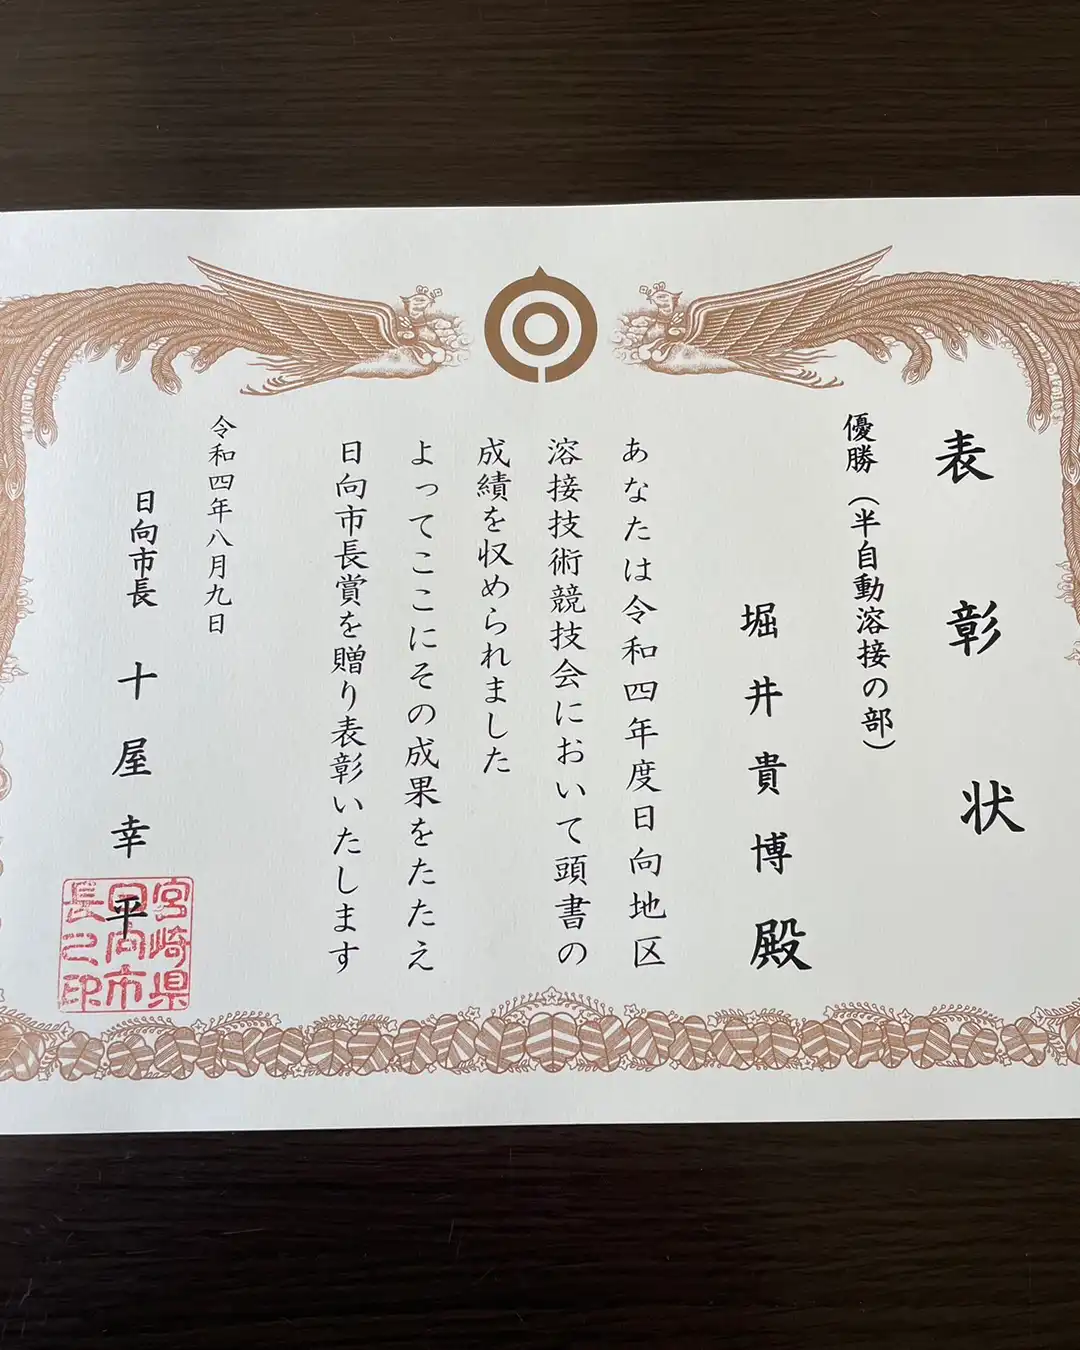 表彰状
優勝（半自動溶接の部）
堀井貴博殿
あなたは令和四年度日向地区
溶接技術競技会において頭書の
成績を収められました
よってここにその成果をたたえ
日向市長賞を贈り表彰いたします
令和四年八月九日
日向市長 十屋幸平
宮崎県
日向市
長之印